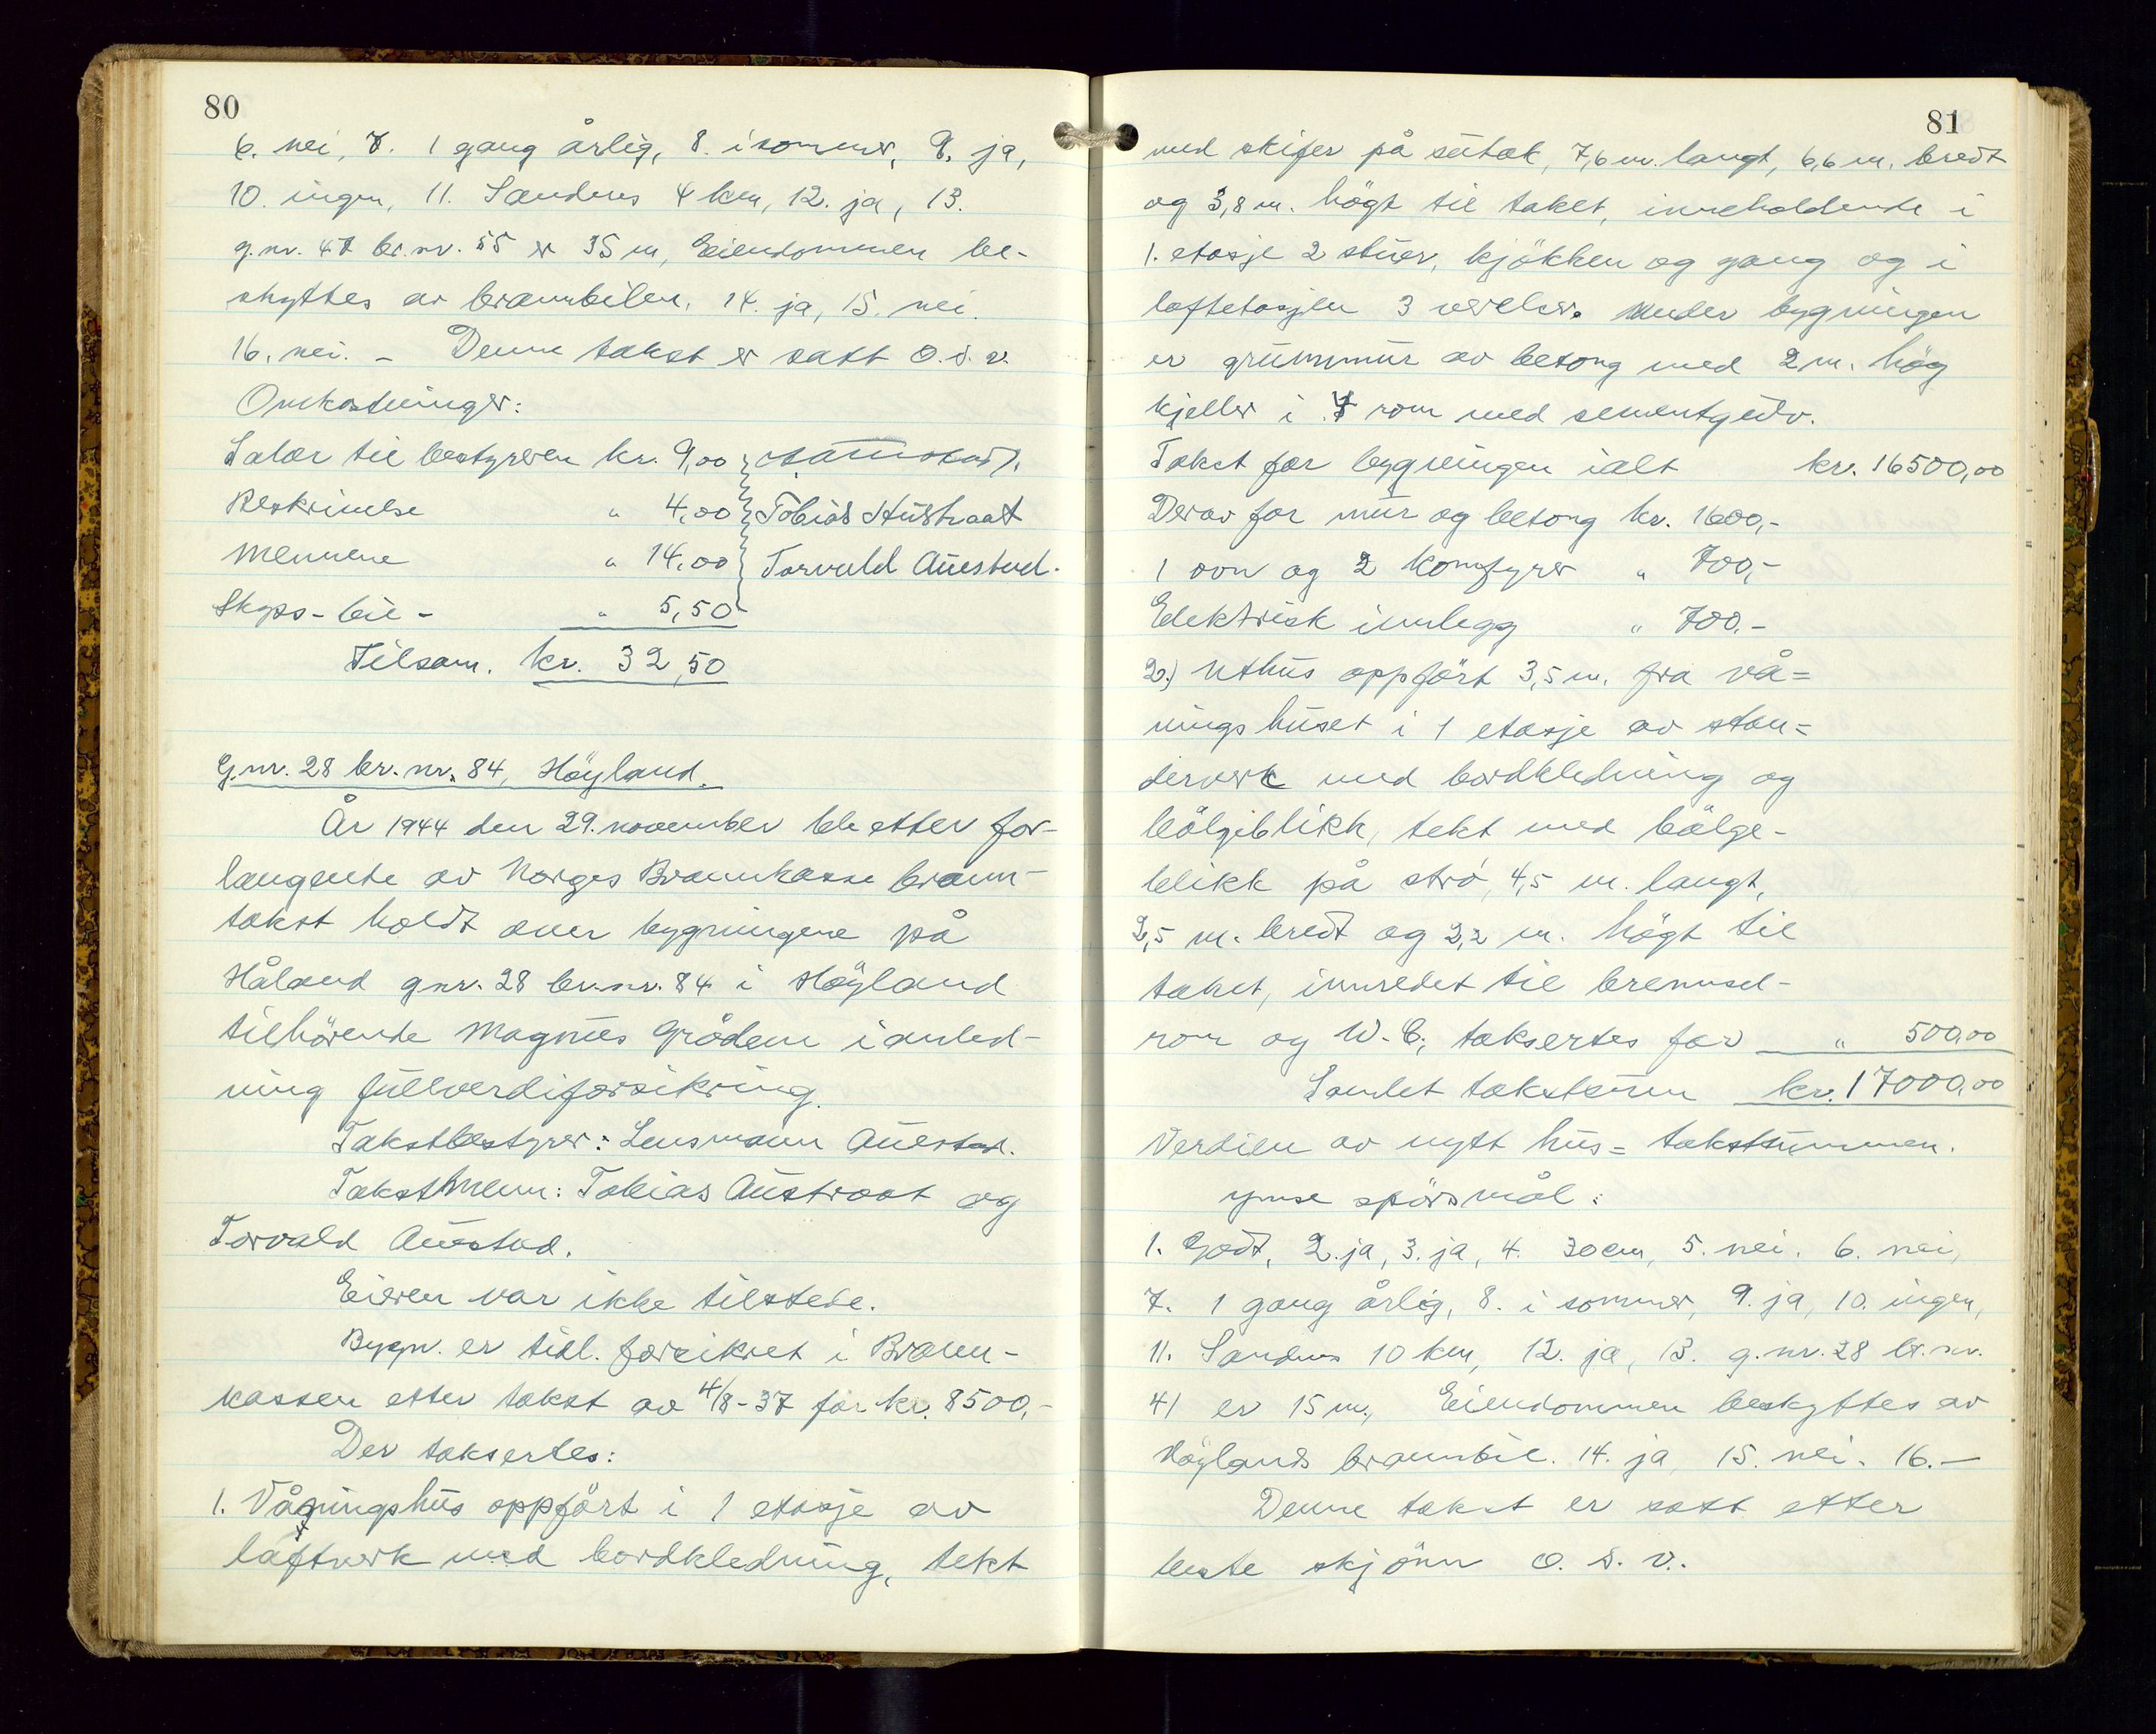 80
6. nei, 7. 1 gang årlig, 8. i sommer, 9. ja,
10. ingen, 11. Sandnes 4 km, 12. ja, 13.
g.nr. 47 br.nr. 55 er 35 m, Eiendommen be-
skyttes av brannbilen. 14. ja, 15. nei.
16. nei. - Denne takst er satt o.s.v.
Omkostninger:
Salær til bestyreren kr. 9,00
Beskrivelse " 4,00 Tobias Austraat
Mennene " 14,00 Torvald Auestad.
Skyss-bil- " 5,50
Tilsam. kr. 32,50
G.nr. 28 br.nr. 84, Höyland.
År 1944 den 29. november ble etter for-
langende av Norges Brannkasse brann-
takst holdt over bygningene på
Håland gnr. 28 br.nr. 84 i Höyland
tilhörende Magnus Grödem i anled-
ning fullverdiforsikring.
Takstbestyrer: Lensmann Auestad.
Takstmenn: Tobias Austraat og
Torvald Auestad.
Eieren var ikke tilstede.
Bygn. er tidl. forsikret i Brann-
kassen etter takst av 4/8-37 for kr. 8500,-
Der taksertes:
1. Våningshus oppfört i 1 etasje av
laftverk med bordkledning, tekt
81
med skifer på sutak, 7,6 m. langt, 6,6 m. bredt
og 3,8 m. högt til taket, inneholdende i
1. etasje 2 stuer, kjökken og gang og i
loftetasjen 3 værelser. Under bygningen
er grunnmur av betong med 2 m. hög
kjeller i 4 rom med sementgulv.
Takst for bygningen ialt kr. 16500,00
Derav for mur og betong kr. 1600,-
1 ovn og 2 komfyrer " 700,-
Elektrisk innlegg " 700.-
2.) Uthus oppfört 3,5 m. fra vå=
ningshuset i 1 etasje av sten=
derverk med bordkledning og
bölgeblikk, tekt med bölge-
blikk på stró, 4,5 m. langt,
2,5 m. bredt og 2,2 m. högt til
taket, innredet til brennsel-
rom og W.C., taksertes for " 500,00
Samlet takstsum kr. 17000,00
Verdien av nytt hus = takstsummen.
Ymse spörsmål:
1. Godt, 2. ja, 3. ja, 4. 30 cm, 5. nei. 6. nei,
7. 1 gang årlig, 8. i sommer, 9. ja, 10. ingen,
11. Sandnes 10 km, 12. ja, 13. g.nr. 28 br.nr.
41 er 15 m, Eiendommen beskyttes av
Höylands brannbil. 14. ja, 15. nei. 16. -
Denne takst er satt etter
beste skjönn o.s.v.